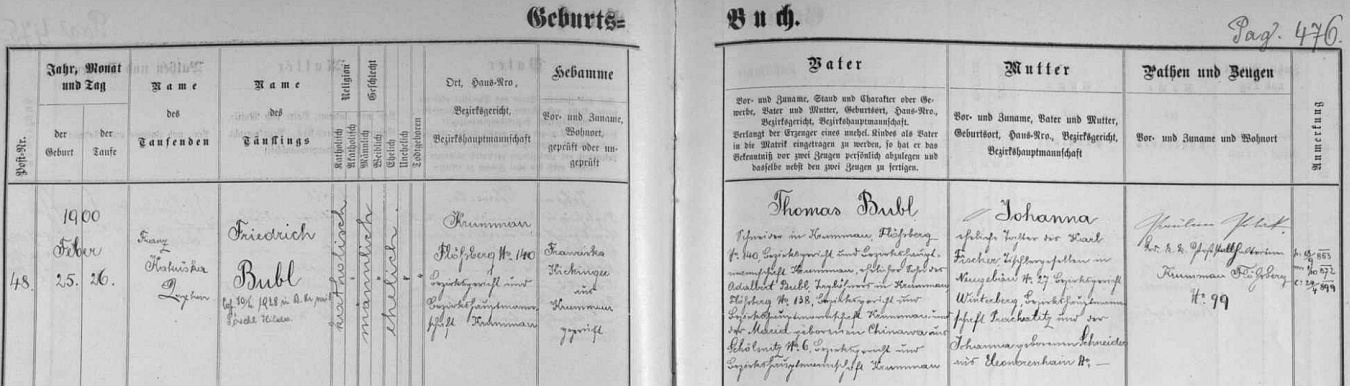 Geburts=
Buch.
Pag. 476.
Post-Nr.
Jahr, Monat
und Tag
der
Geburt
der
Taufe
Name
des
Taufenden
Name
des
Täuflings
Religion
Katholisch
Akatholisch
Geschlecht
Männlich
Weiblich
Ehelich
Unehelich
Todtgeboren
Ort, Haus-Nro,
Bezirksgericht,
Bezirkshauptmannschaft
Hebamme
Vor- und Zuname,
Wohnort,
geprüft oder un-
geprüft
Vater
Vor- und Zuname, Stand und Charakter oder Ge-
werbe, Vater und Mutter, Geburtsort, Haus-Nro.,
Bezirksgericht, Bezirkshauptmannschaft.
Verlangt der Erzeuger eines unehel. Kindes als Vater
in die Matrik eingetragen zu werden, so hat er das
Bekenntniß vor zwei Zeugen persönlich abzulegen und
dasselbe nebst den zwei Zeugen zu fertigen.
Mutter
Vor- und Zuname, Vater und Mutter,
Geburtsort, Haus-Nro., Bezirksgericht,
Bezirkshauptmannschaft
Pathen und Zeugen
Vor- und Zuname und Wohnort
Anmerkung
48.
1900
Feber
25.
26.
Franz
Friedrich
Bubl
katholisch
männlich
ehelich.
Krummau
Flößberg No 140
Bezirksgericht und
Bezirkshauptmann-
schaft Krummau
Franziska
aus
Krummau
geprüft
Thomas Bubl
Schneider in Krummau, Flößberg
No 140, Bezirksgericht und Bezirkshaupt-
mannschaft Krummau, ehelicher Sohn des
Adalbert Bubl, Taglöhners in Krummau
Flößberg No 138, Bezirksgericht und
Bezirkshauptmannschaft Krummau und
der Maria geborenen Chinawa aus
No 6, Bezirksgericht und
Bezirkshauptmannschaft Krummau
Johanna
eheliche Tochter des Karl
Fischer, Tischlergesellen in
Neugebäu No 27, Bezirksgericht
Winterberg, Bezirkshauptmann-
schaft Prachatitz und der
Johanna geborenen Schneider
aus Eleonorenhain No —
Krummau Flößberg
No 99